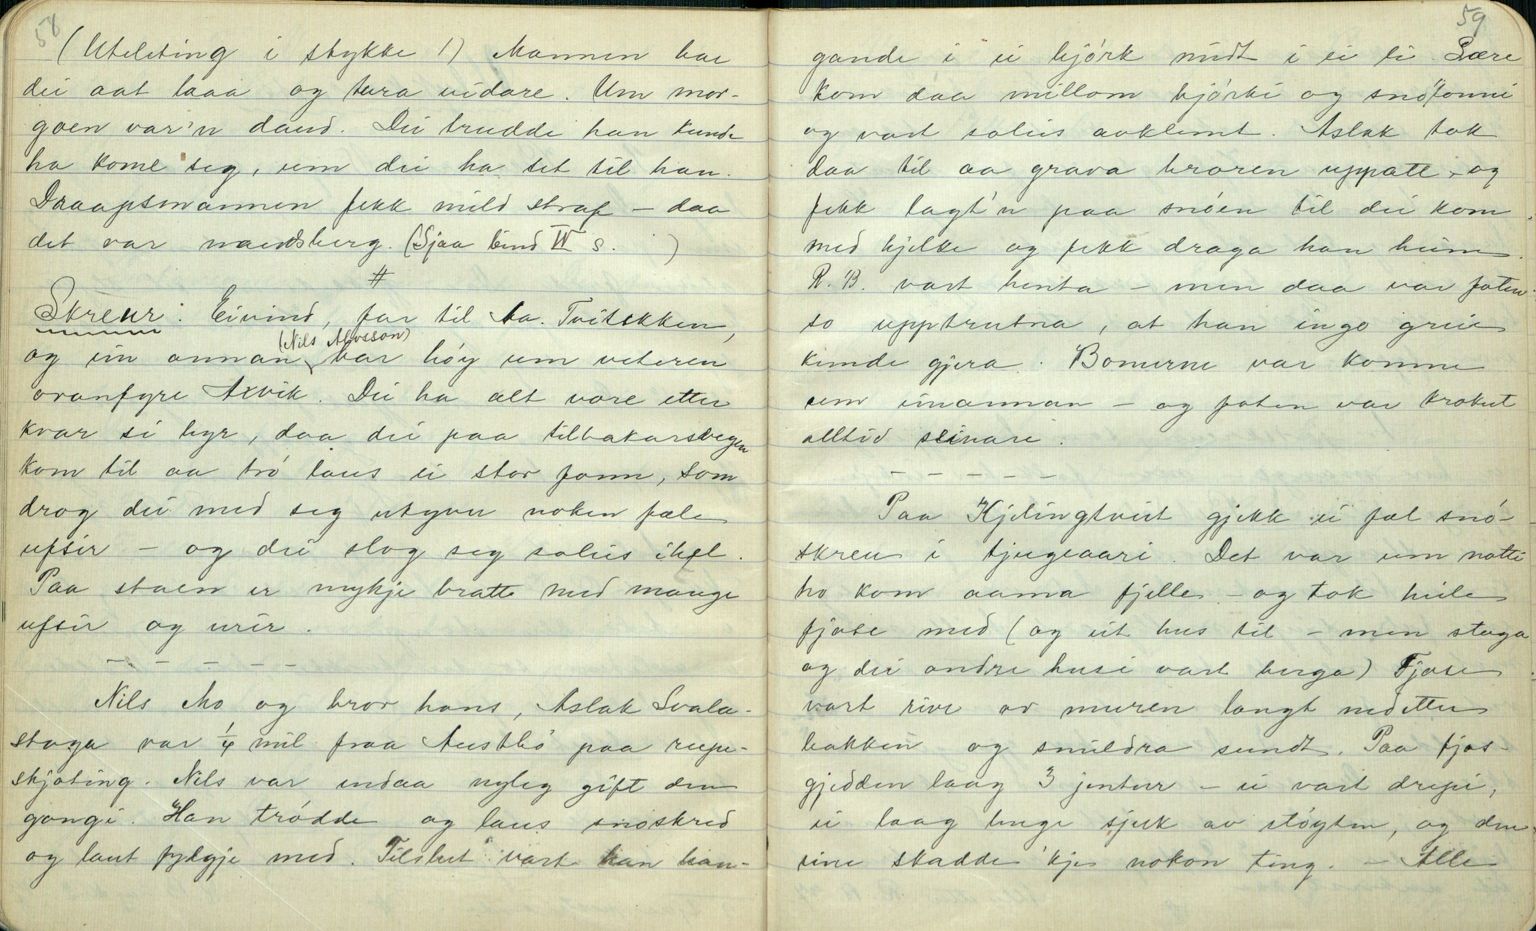 58
(Uteleting i stykke 1) Mannen bae
dei aat laaa og tura vidare. Um mor-
goen var'n daud. Dei trudde han kunde
ha kome seg, um dei ha set til han.
Draapsmannen fekk mild straf – daa
det var naudsberg. (Sjaa bind IV s. )
#
Skreur: Eivind, far til Aa. Tveitekken,
og ein annan (Nils Alvsson) bar høy um veteren
ovanfyre Axvik. Dei ha alt vore etter
kvar si byr, daa dei paa tilbakarsvegen
kom til aa trø laus ei stor fonn, som
drog dei med seg utyver noken fæle
ufsir – og dei slog seg soleis ihel.
Paa staen er mykje bratte med mange
ufsir og urir.
– – – – – –
Nils Mo og bror hans, Aslak Svala-
stoga var 1/4 mil fraa Austbø paa rupe-
skjoting. Nils var endaa nyleg gift den
gongi. Han trødde og laus snøskred
og laut fylgje med. Tilslut vart han han-
59
gande i ei bjørk midt i ei li. Lære
kom daa millom bjørki og snøfonni
og vart soleis avklemt. Aslak tok
daa til aa grava broren uppatt, og
fekk lagt'n paa snøen til dei kom
med kjelke og fekk draga han heim.
R. B. vart henta – men daa var foten
so upptrutna, at han inge greie
kunde gjera. Bomerne var komne
um einannan – og foten var krokut
alltid seinare.
– – – – –
Paa Kjelingtveit gjekk ei fæl snø-
skreu i tjugeaari. Det var um natti
ho kom aama fjelle – og tok heile
fjose med (og eit hus til – men stoga
og dei andre husi vart berga) Fjose
vart rive av muren langt nedetter
bakken og smildra sundt. Paa fjos-
gjedden laag 3 jentur – ei vart drepi,
ei laag lenge sjuk av støyten, og den
eine skadde 'kje nokon ting. – Alle